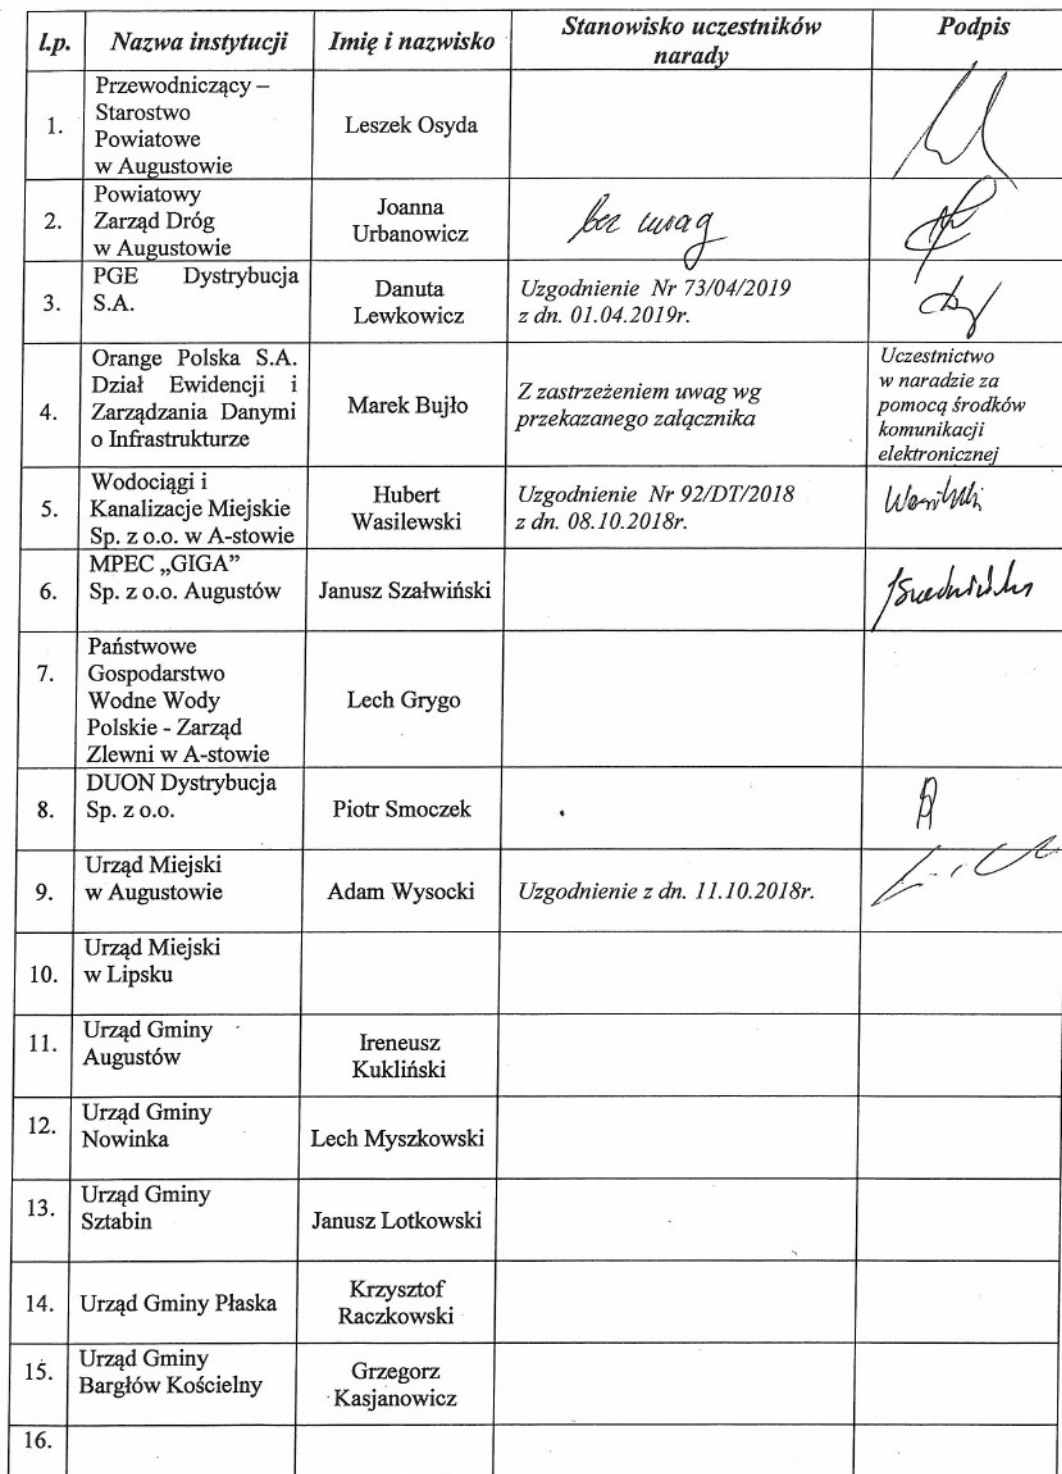 l.p. Nazwa instytucji Imię i nazwisko Stanowisko uczestników narady Podpis
1. Przewodniczący –
Starostwo
Powiatowe
w Augustowie
Leszek Osyda
2. Powiatowy
Zarząd Dróg
w Augustowie
Joanna
Urbanowicz
bez uwag
3. PGE Dystrybucja
S.A.
Danuta
Lewkowicz
Uzgodnienie Nr 73/04/2019
z dn. 01.04.2019r.
4. Orange Polska S.A.
Dział Ewidencji i
Zarządzania Danymi
o Infrastrukturze
Marek Bujło
Z zastrzeżeniem uwag wg
przekazanego załącznika
Uczestnictwo
w naradzie za
pomocą środków
komunikacji
elektronicznej
5. Wodociągi i
Kanalizacje Miejskie
Sp. z o.o. w A-stowie
Hubert
Wasilewski
Uzgodnienie Nr 92/DT/2018
z dn. 08.10.2018r.
6. MPEC „GIGA”
Sp. z o.o. Augustów
Janusz Szałwiński
7. Państwowe
Gospodarstwo
Wodne Wody
Polskie - Zarząd
Zlewni w A-stowie
Lech Grygo
8. DUON Dystrybucja
Sp. z o.o.
Piotr Smoczek
9. Urząd Miejski
w Augustowie
Adam Wysocki
Uzgodnienie z dn. 11.10.2018r.
10. Urząd Miejski
w Lipsku
11. Urząd Gminy
Augustów
Ireneusz
Kukliński
12. Urząd Gminy
Nowinka
Lech Myszkowski
13. Urząd Gminy
Sztabin
Janusz Lotkowski
14. Urząd Gminy Płaska
Krzysztof
Raczkowski
15. Urząd Gminy
Bargłów Kościelny
Grzegorz
Kasjanowicz
16.